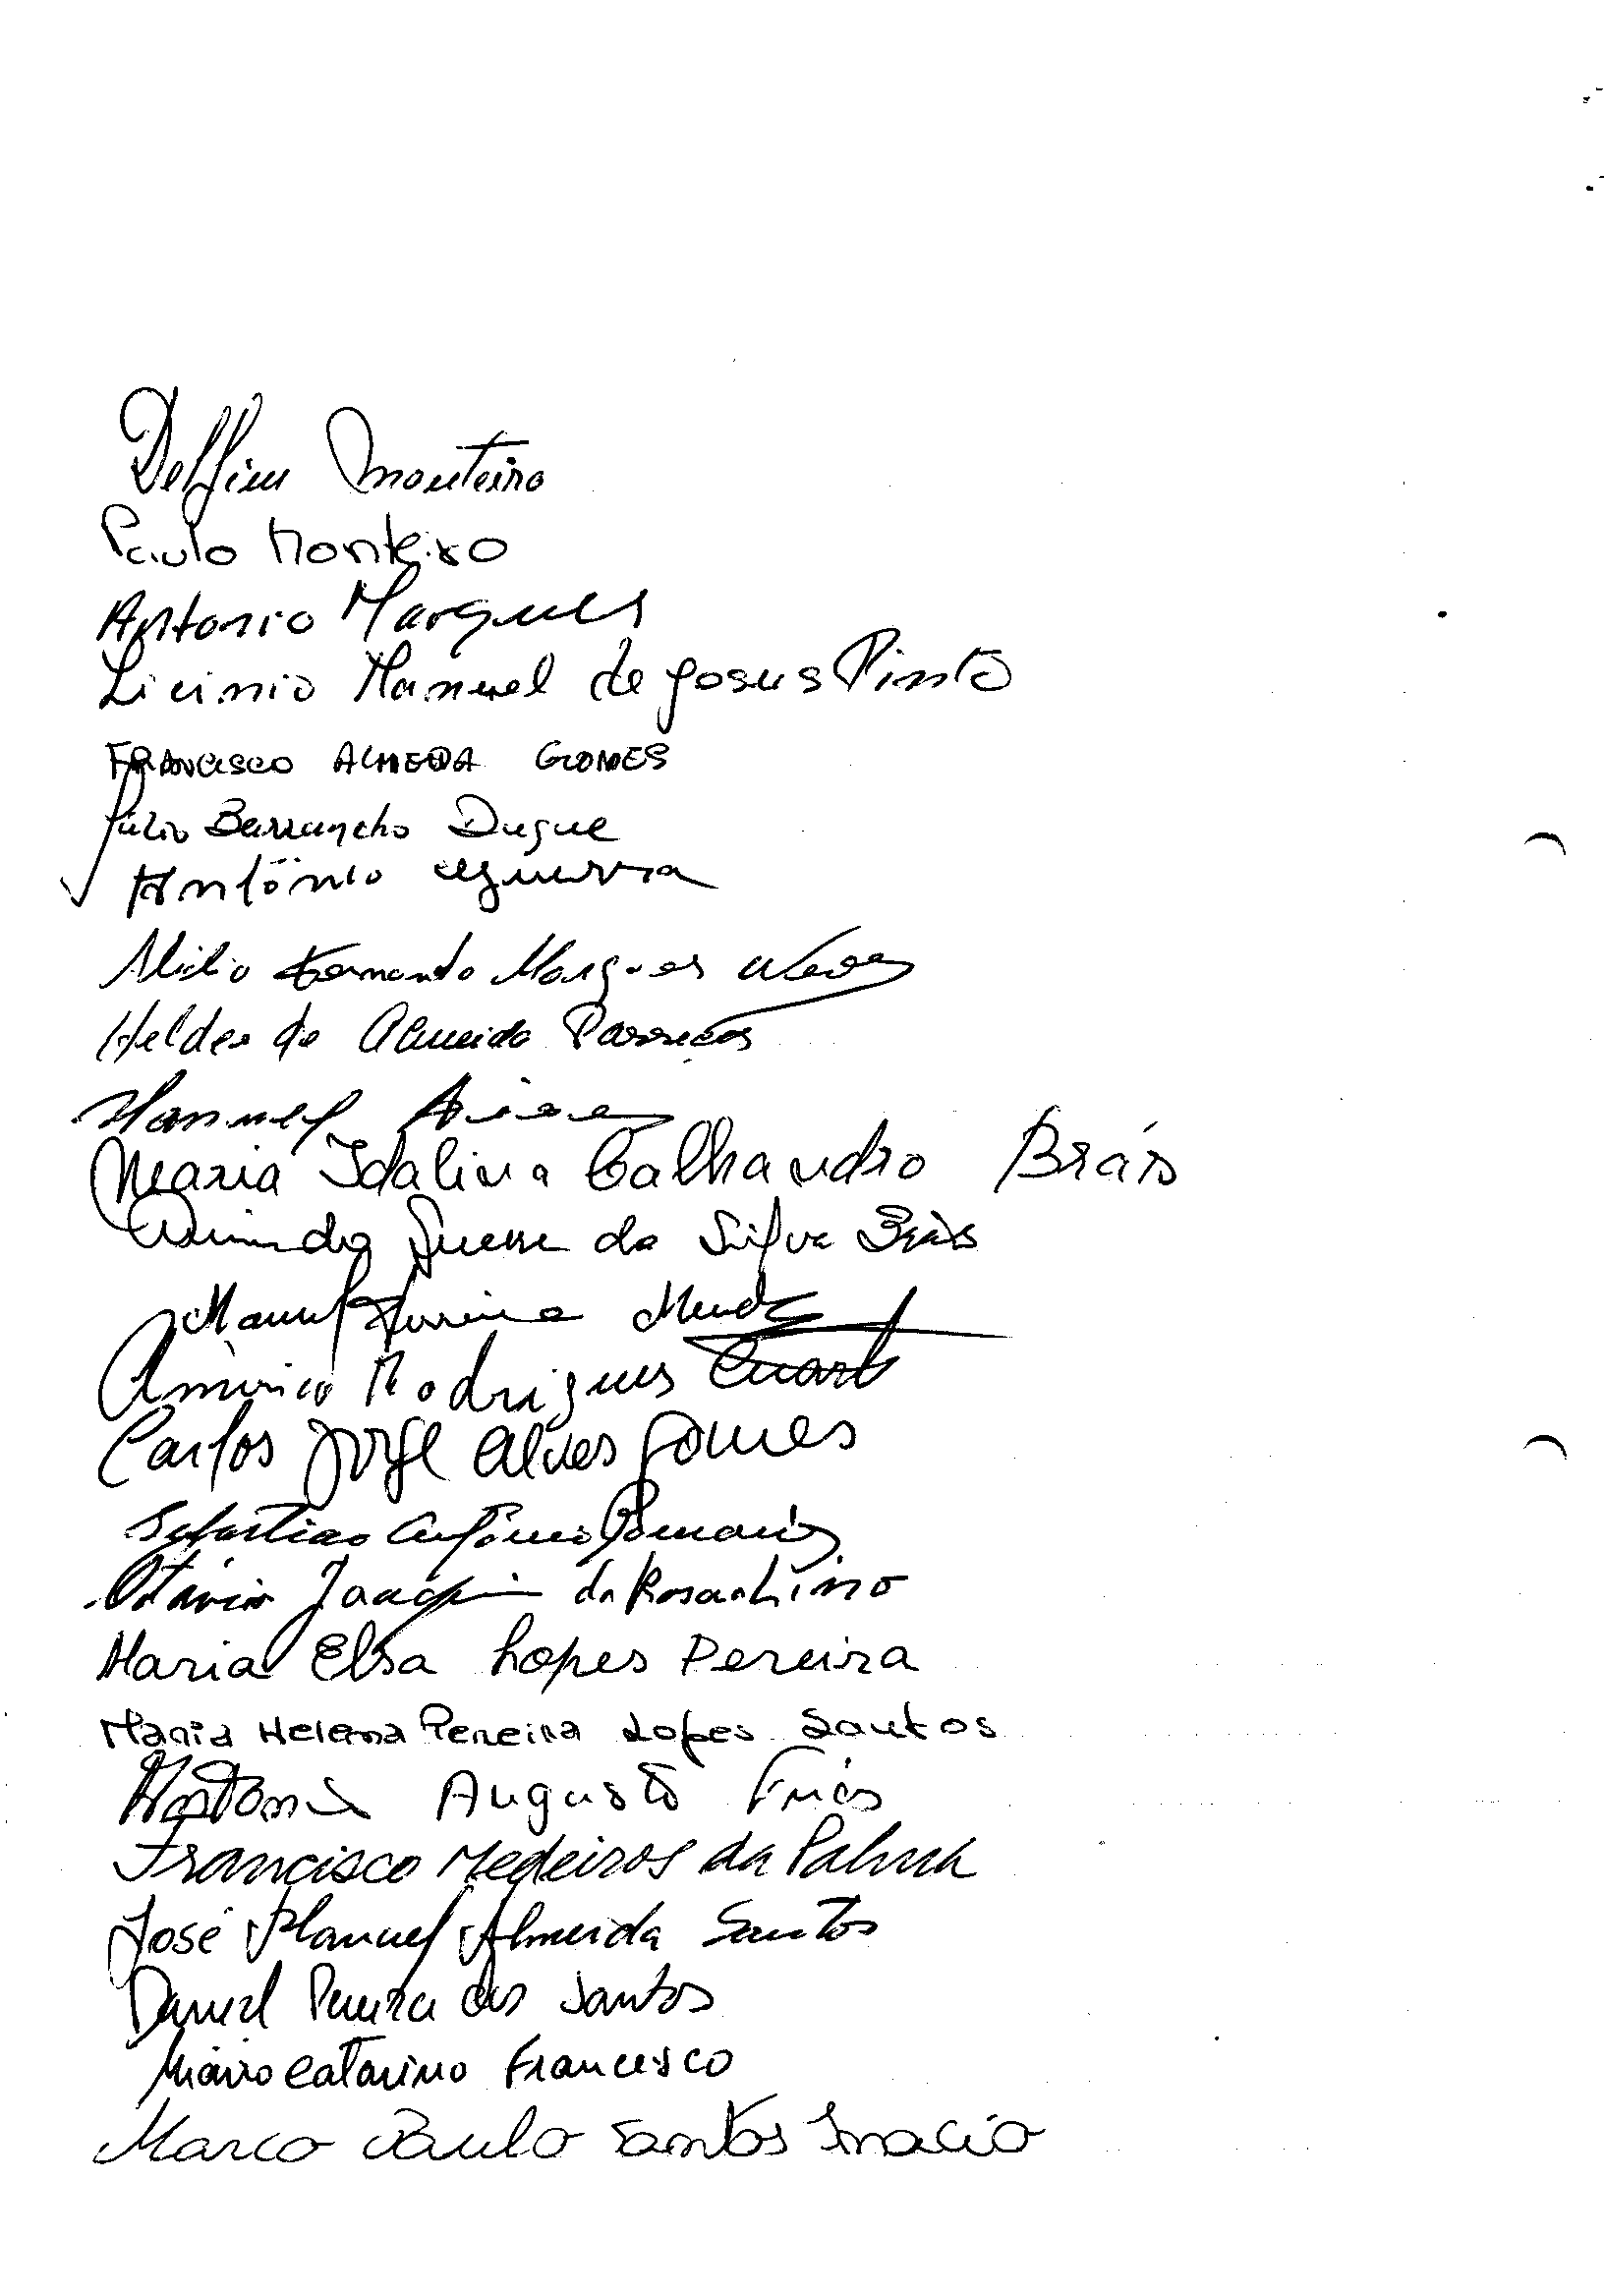 Delfim Monteiro
Paulo Monteiro
Antonio Marques
Licinio Manuel de Jesus Pinto
FRANCISCO ALMEIDA GOMES
Júlio Barrancho Duque
António Guerra
Fernando Marques Neves
Helder de Almeida
Manuel
Maria Idalina Calhandro Brás
da Silva Brás
Manuel Ferreira Mendes
Américo Rodrigues Duarte
Carlos Jorge Alves Gomes
Sebastião António Romanis
Otávio Joaquim
Maria Elsa Lopes Pereira
Maria Helena Pereira Lopes Santos
António Augusto Frias
Francisco Medeiros da Palma
José Manuel Almeida Santos
Daniel Pereira dos Santos
Mário Catarino Francisco
Marco Paulo Santos Inacio